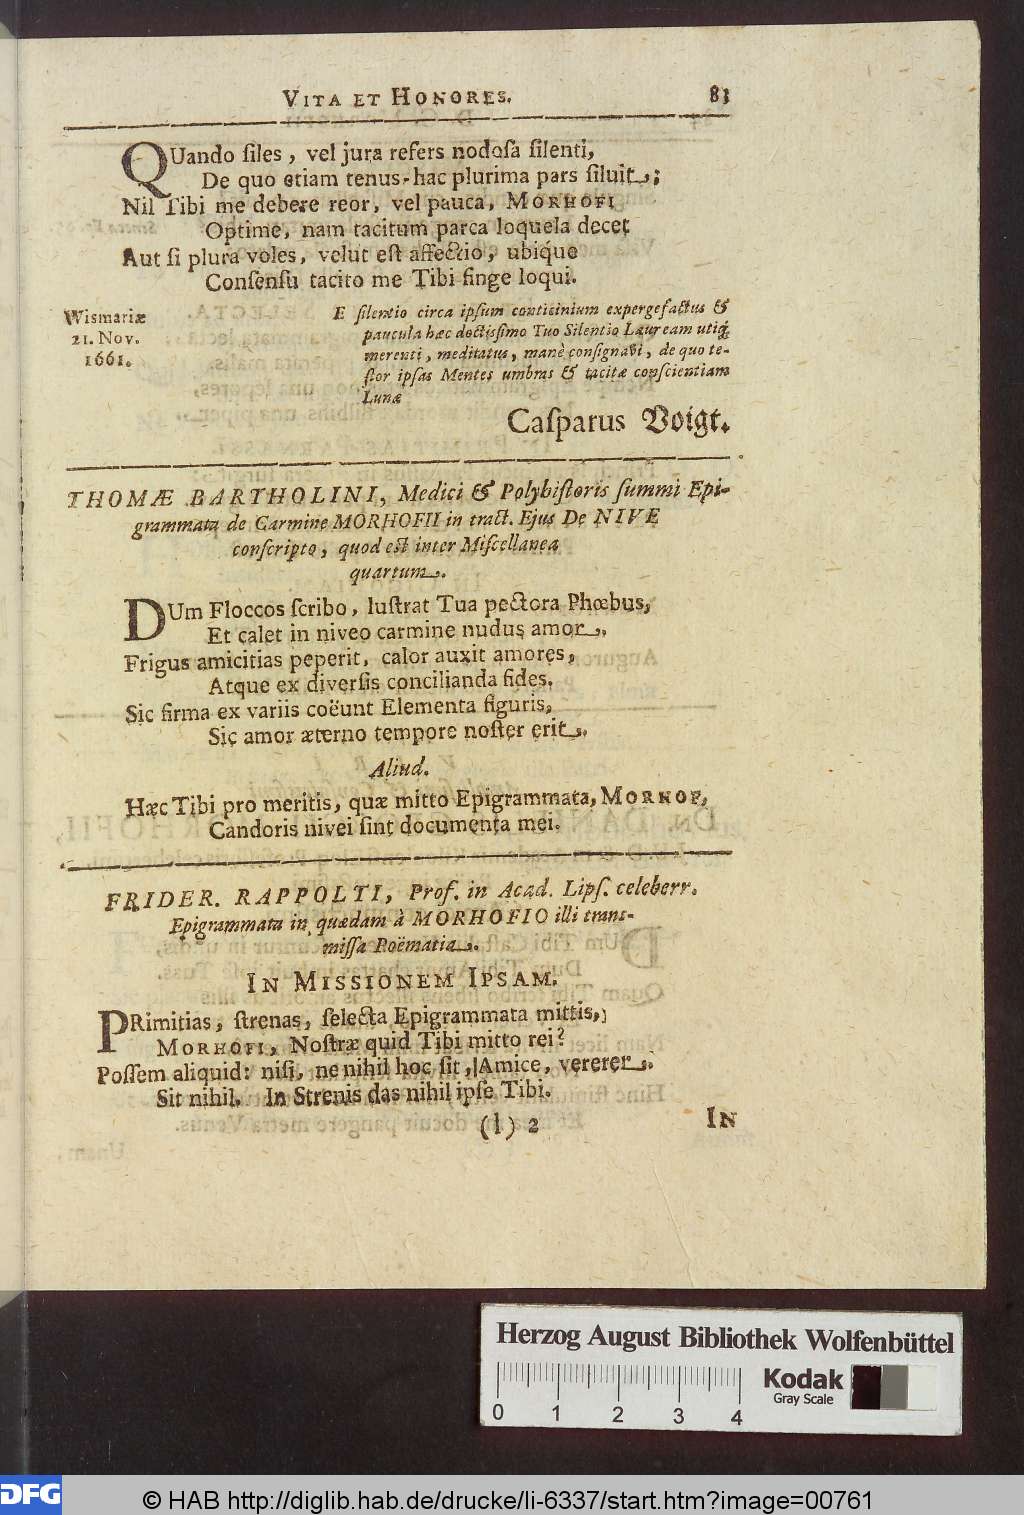 VITA ET HONORES. 83
QUando ſiles, vel jura refers nodoſa ſilenti,
De quo etiam tenus-hac plurima pars ſiluit;
Nil Tibi me debere reor, vel pauca, MORHOFI
Optime, nam tacitum parca loquela decet
Aut ſi plura voles, velut eſt affectio, ubiq́ue
Conſenſu tacito me Tibi finge loqui.
Wismariæ
21. Nov.
1661.
E ſilentio circa ipſum conticinium expergefactus &
paucula hæc doctiſſimo Tuo Silentio Lauream utiq;
merenti, meditatus, manè conſignavi, de quo te-
ſtor ipſas Mentes umbras & tacitæ conſcientiam
Lunæ
Caſparus Voigt.
THOMÆ BARTHOLINI, Medici & Polyhiſtoris ſummi Epi-
grammata de Carmine MORHOFII in tract. Ejus De NIVE
conſcripto, quod eſt inter Miſcellanea
quartum.
DUm Floccos ſcribo, luſtrat Tua pectora Phœbus,
Et calet in niveo carmine nudus amor.
Frigus amicitias peperit, calor auxit amores,
Atque ex diverſis concilianda fides.
Sic firma ex variis coëunt Elementa figuris,
Sic amor æterno tempore noſter erit.
Aliud.
Hæc Tibi pro meritis, quæ mitto Epigrammata, MORHOF,
Candoris nivei ſint documenta mei.
FRIDER. RAPPOLTI, Prof. in Acad. Lipſ. celeberr.
Epigrammata in quædam à MORHOFIO illi trans-
miſſa Poëmatia.
IN MISSIONEM IPSAM.
PRimitias, ſtrenas, ſelecta Epigrammata mittis,
MORHOFI, Noſtræ quid Tibi mitto rei?
Poſſem aliquid: niſi, ne nihil hoc ſit, Amice, vererer.
Sit nihil. In Strenis das nihil ipſe Tibi.
(l) 2 IN
Herzog August Bibliothek Wolfenbüttel
0 1 2 3 4
Kodak
Gray Scale
DFG
© HAB http://diglib.hab.de/drucke/li-6337/start.htm?image=00761